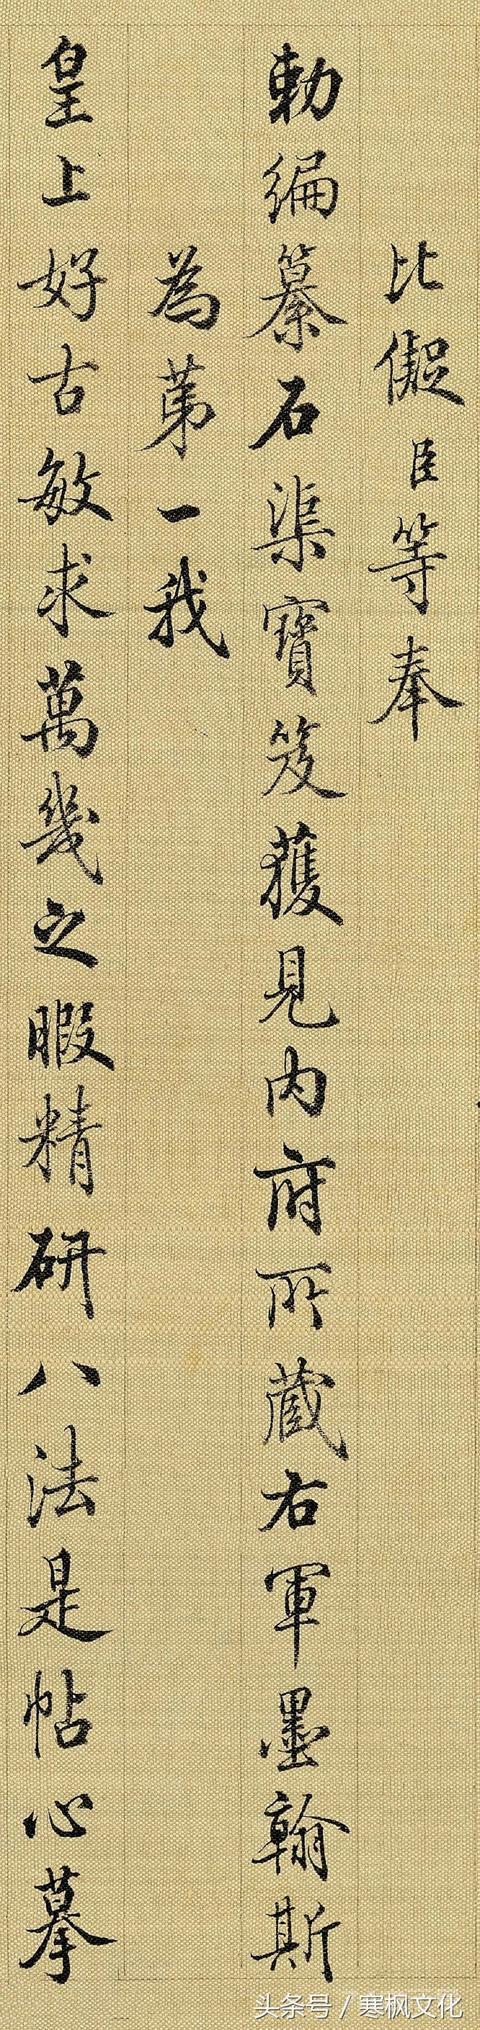 比儗臣等奉
勅編纂石渠寳笈獲見内府所蔵右軍墨翰斯
為苐一我
皇上好古敏求萬幾之暇精研八法是帖心摹
头条号 / 寒枫文化